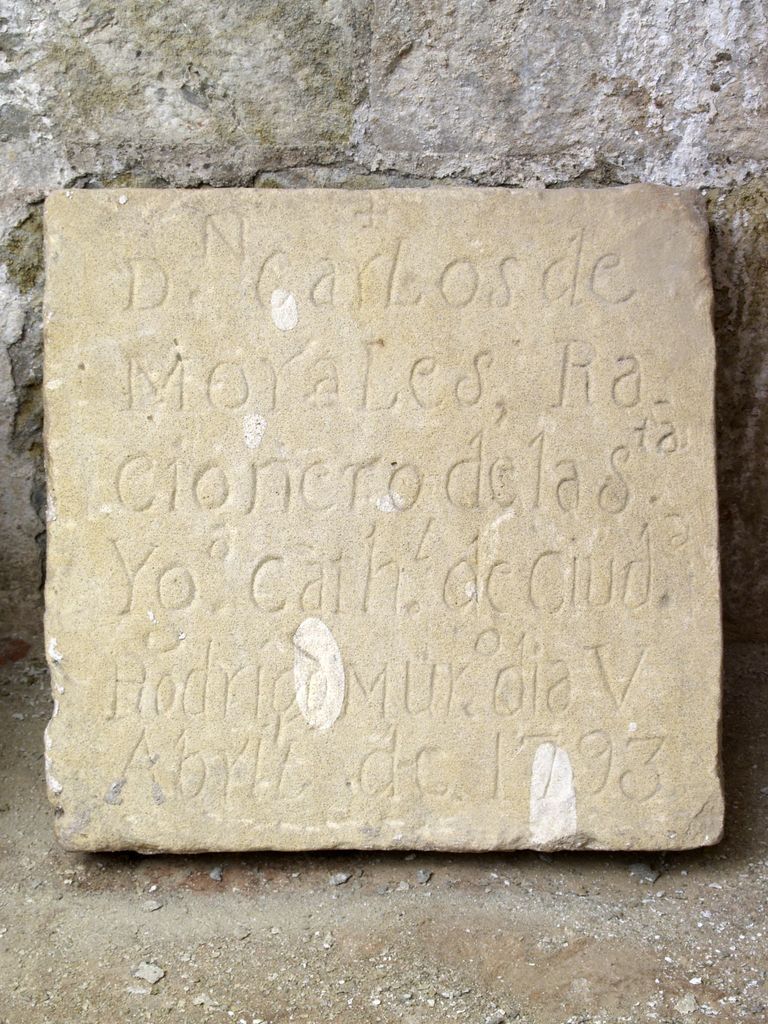 +
D.ᴺ Carlos de
Morales, Ra-
cionero de la S.ᵗᵃ
Yg.ᵃ Cath.ˡ de Ciud.ᵈ
Rodrigo Mur.ᵒ dia V
Abril de 1793